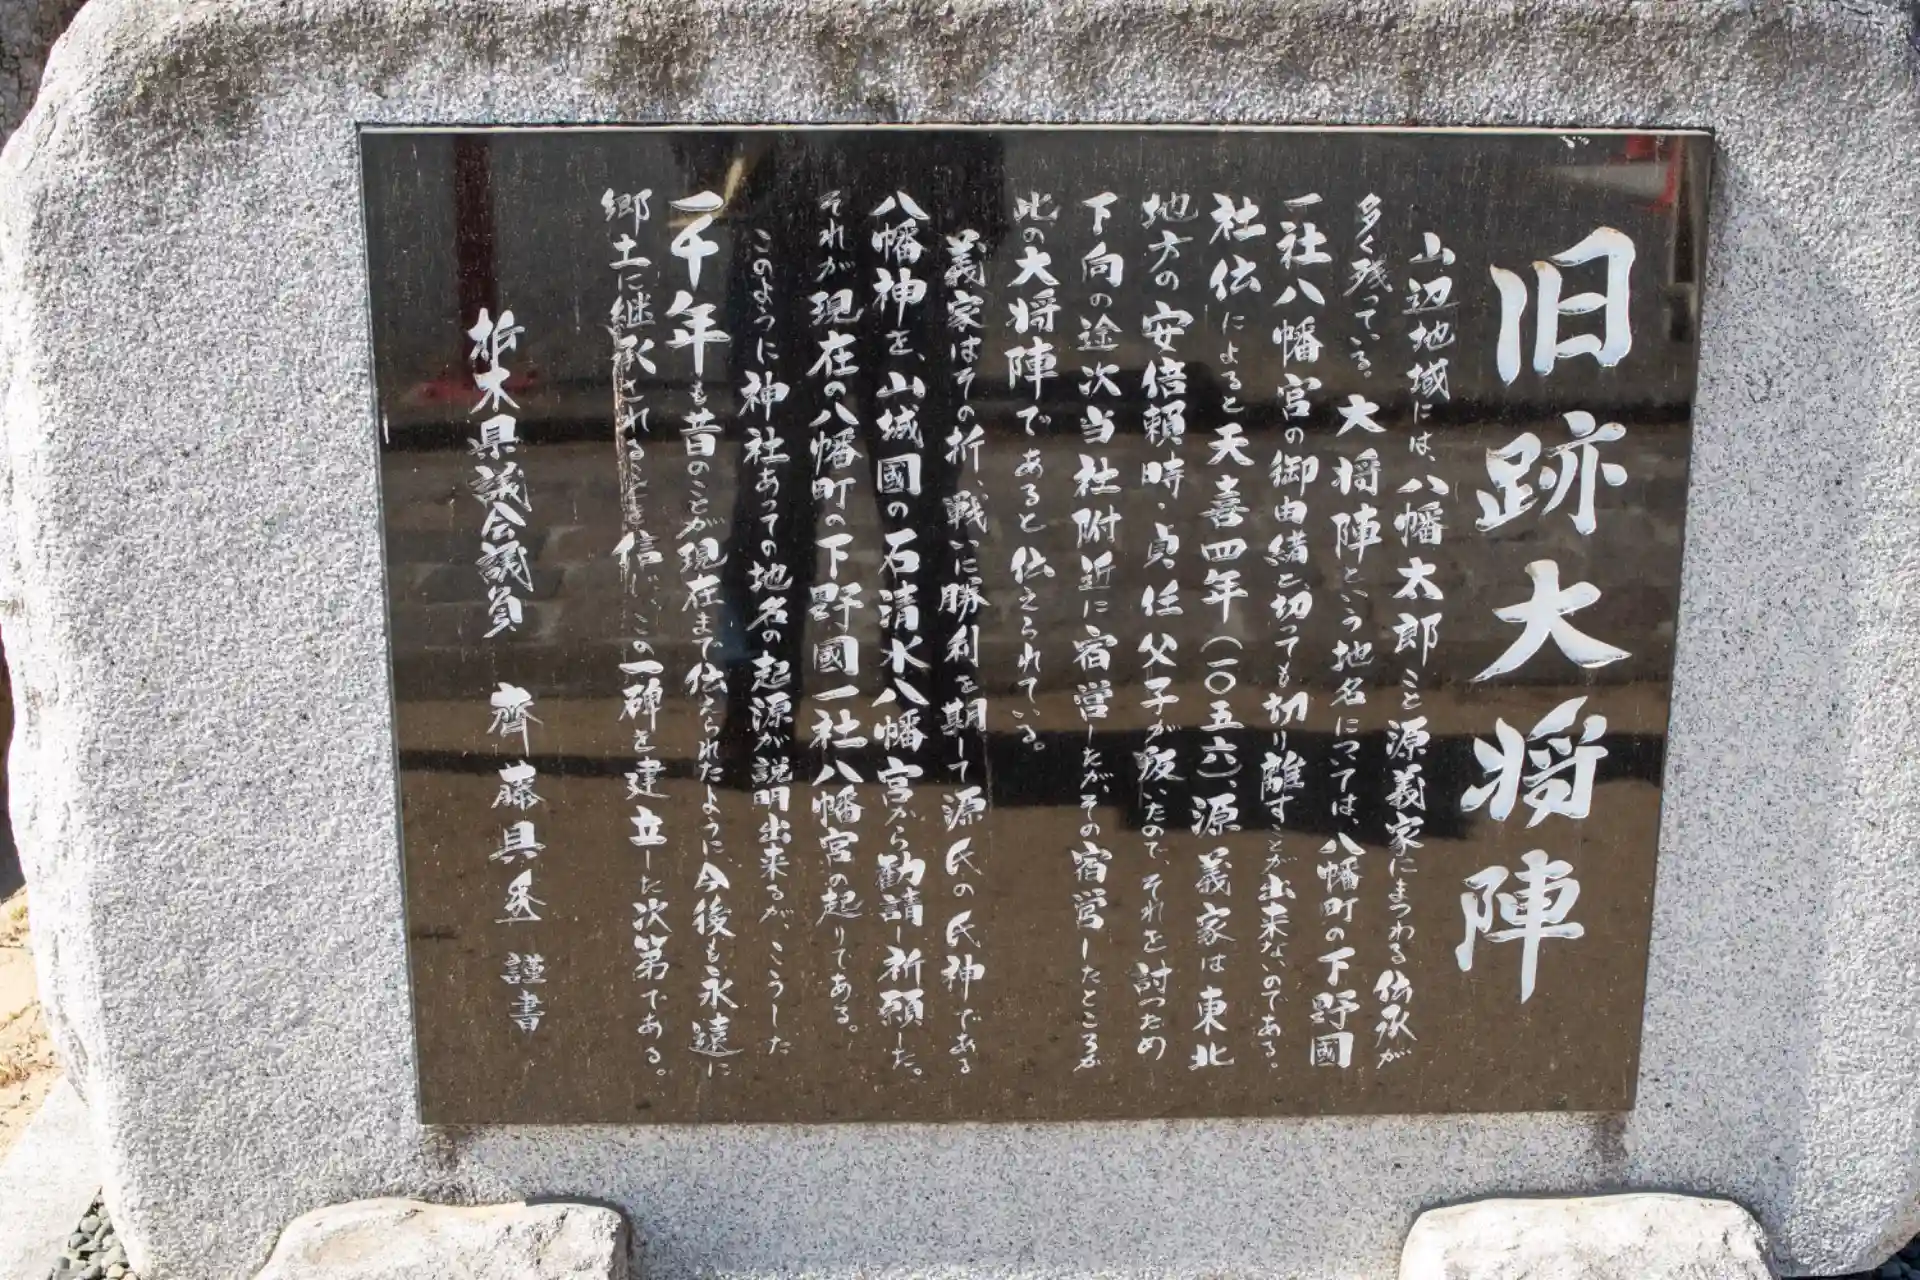 旧跡大将陣
山辺地域には、八幡太郎こと源義家にまつわる伝承が
多く残っている。大将陣という地名については、八幡町の下野國
一社八幡宮の御由緒と切っても切り離すことが出来ないのである。
社伝によると天喜四年(一〇五六)、源義家は東北
地方の安倍頼時・貞任父子が叛いたので、それを討つため
下向の途次当社附近に宿営したが、その宿営したところが
此の大将陣であると伝えられている。
義家はその折、戦いに勝利を期して源氏の氏神である
八幡神を、山城國の石清水八幡宮から勧請し祈願した。
それが現在の八幡町の下野國一社八幡宮の起りである。
このように神社あっての地名の起源が説明出来るが、こうした
一千年も昔のことが現在まで伝えられたように、今後も永遠に
郷土に継承されることを信じ、この一碑を建立した次第である。
栃木県議会議員 齊藤具秀 謹書